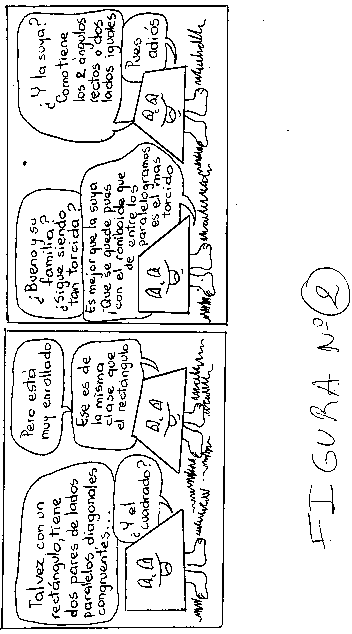 Tal vez con un
rectángulo, tiene
dos pares de lados
paralelos, diagonales
congruentes....
¿Y el
cuadrado?
Pero está
muy enrollado
Ese es de
la misma
clave que
el rectángulo
¿Bueno y su
familia?
¿Sigue siendo
tan torcida?
Es mejor que la suya
Que se quede pues
con el romboide que
de entre los
paralelogramos
es el mas
torcido
¿Y la suya?
Como tiene
los 2 ángulos
rectos y dos
lados iguales
Pues
adiós
FIGURA Nº 2